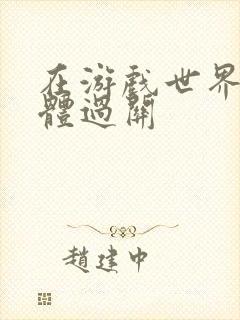 在游戏世界
體過關
趙建中